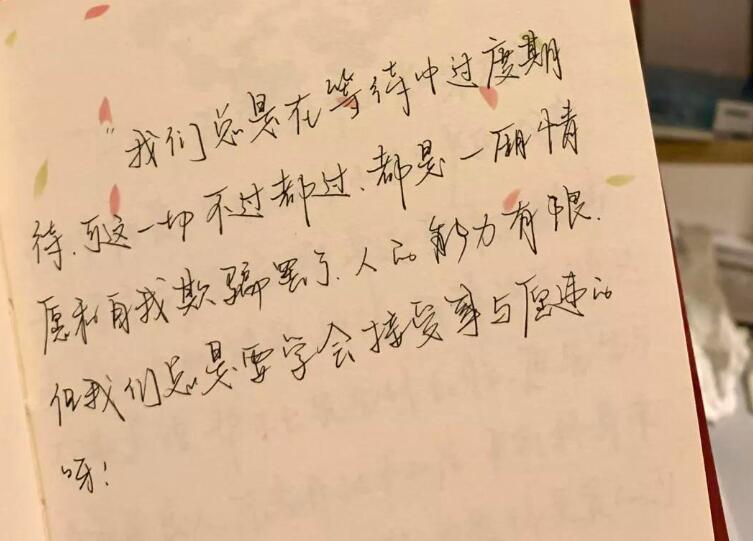 “我们总是在等待中过度期
待、可这一切不过都过、都是一厢情
愿和自我欺骗罢了、人的能力有限、
但我们总是要学会接受事与愿违的
呀！